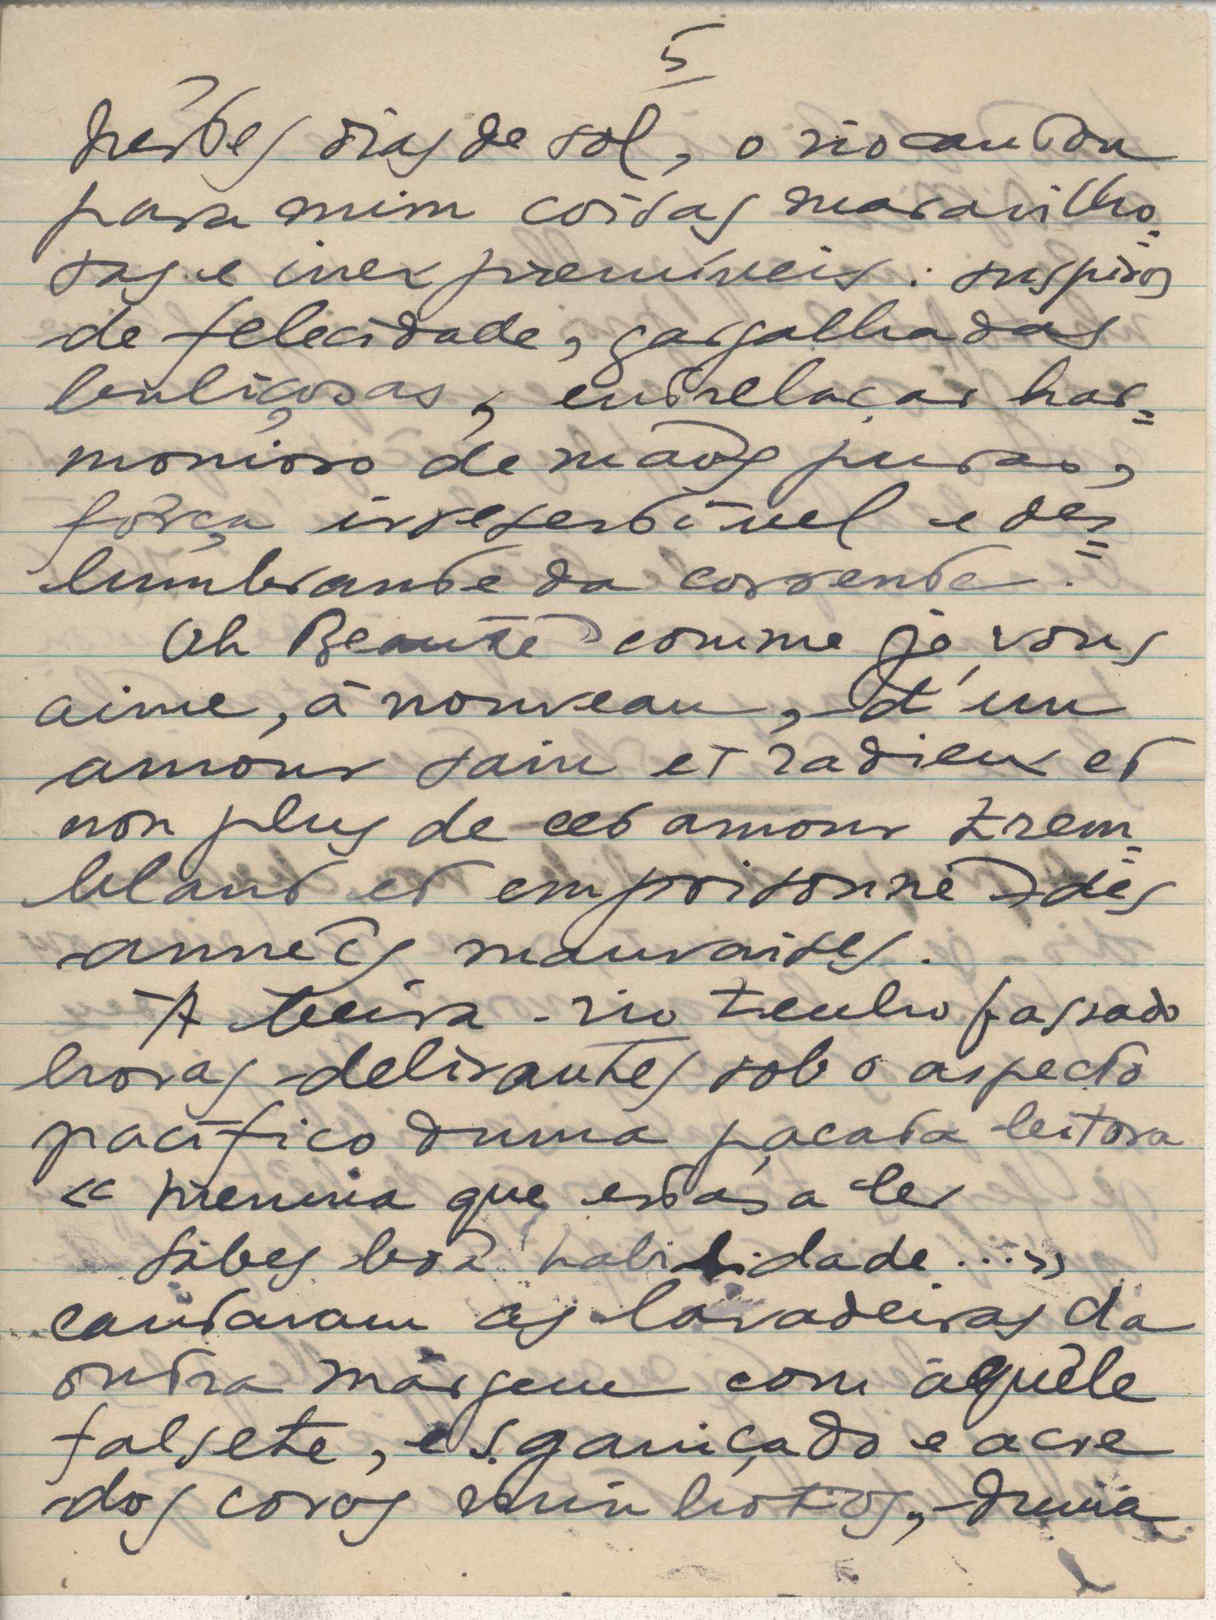 5
nestes dias de sol, o rio cantou
para mim coisas maravilho=
sas e inexpremíveis: suspiros
de felecidade, gargalhadas
buliçosas, entrelaçar har=
monioso de maõs puras,
fôrça irresestível e des=
lumbrante da corrente.
Oh Beauté comme je vous
aime, à nouveau, d'un
amour sain et radieux et
non plus de cet amour trem=
blant et emprisonné des
années mauvaises.
À beira-rio tenho passado
horas delirantes sob o aspecto
pacífico duma pacata leitora
« menina que estás a ler
sibes boa habilidade...»
cantavam as lavadeiras da
outra márgem com àquêle
falsete, esganiçado e acre
dos coros minhotos, duma